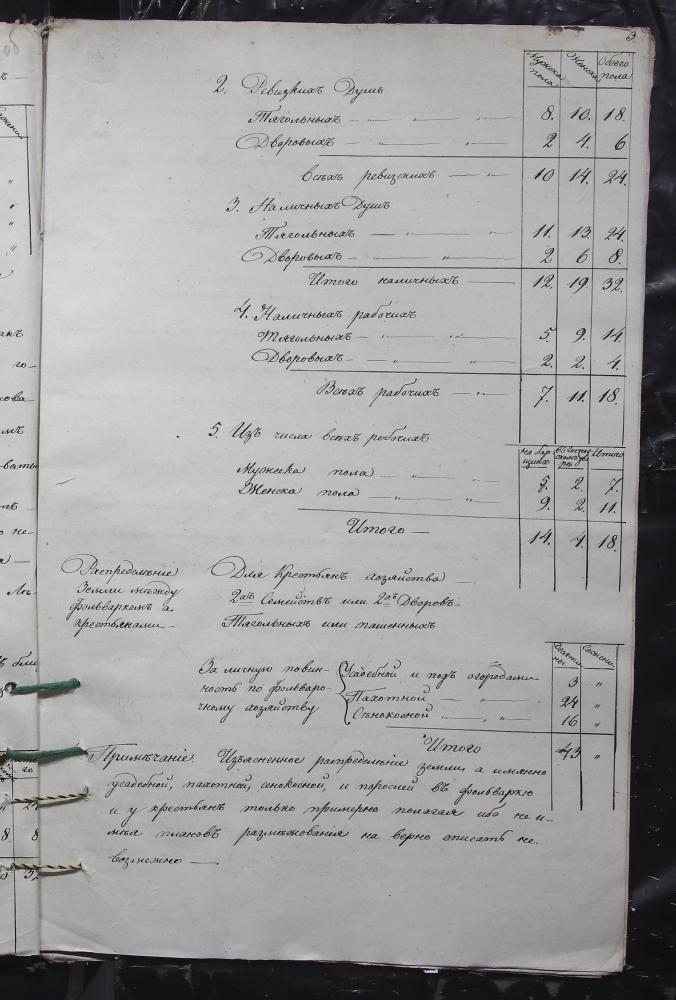 3.
Мужеска пола Женска Обоего пола
2. Ревизкихъ Душъ
Тягольныхъ — 8. 10. 18.
Дворовыхъ — 2 4. 6
Всѣхъ ревизскихъ — 10 14. 24.
3. Наличныхъ Душъ
Тягольныхъ — 11. 13. 24.
Дворовыхъ — 2 6 8.
Итого наличныхъ — 12. 19 32.
4. Наличныхъ рабочихъ
Тягольныхъ — 5. 9. 14.
Дворовыхъ — 2. 2. 4.
Всѣхъ рабочихъ — 7. 11. 18.
5. Изъ числа всѣхъ робочихъ
на барщинѣ Итого
Мужеска пола — 5. 2. 7.
Женска пола — 9. 2. 11.
Итого — 14. 4. 18.
Распредѣленіе
Земли между
фольваркомъ и
крестьянами —
Для Крестьянъ хозяйства —
2хъ Семействъ или 2хъ Дворовъ
Тягольныхъ или пашенныхъ
Десятины Сажени
За личную повин-
ность по фольваро-
чному хозяйству
Усадебной и подъ огородами 3 "
Пахотной — 24 "
Сѣнокосной — 16 "
Итого 43 "
Примѣчаніе. Изъясненное распредѣленіе земли, а имянно
усадебной, пахотной, сенокосной, и порослей въ фольварко
и у крестьянъ только примерно полагая ибо не и-
мѣя плановъ размежованія на верно описать не-
возможно —